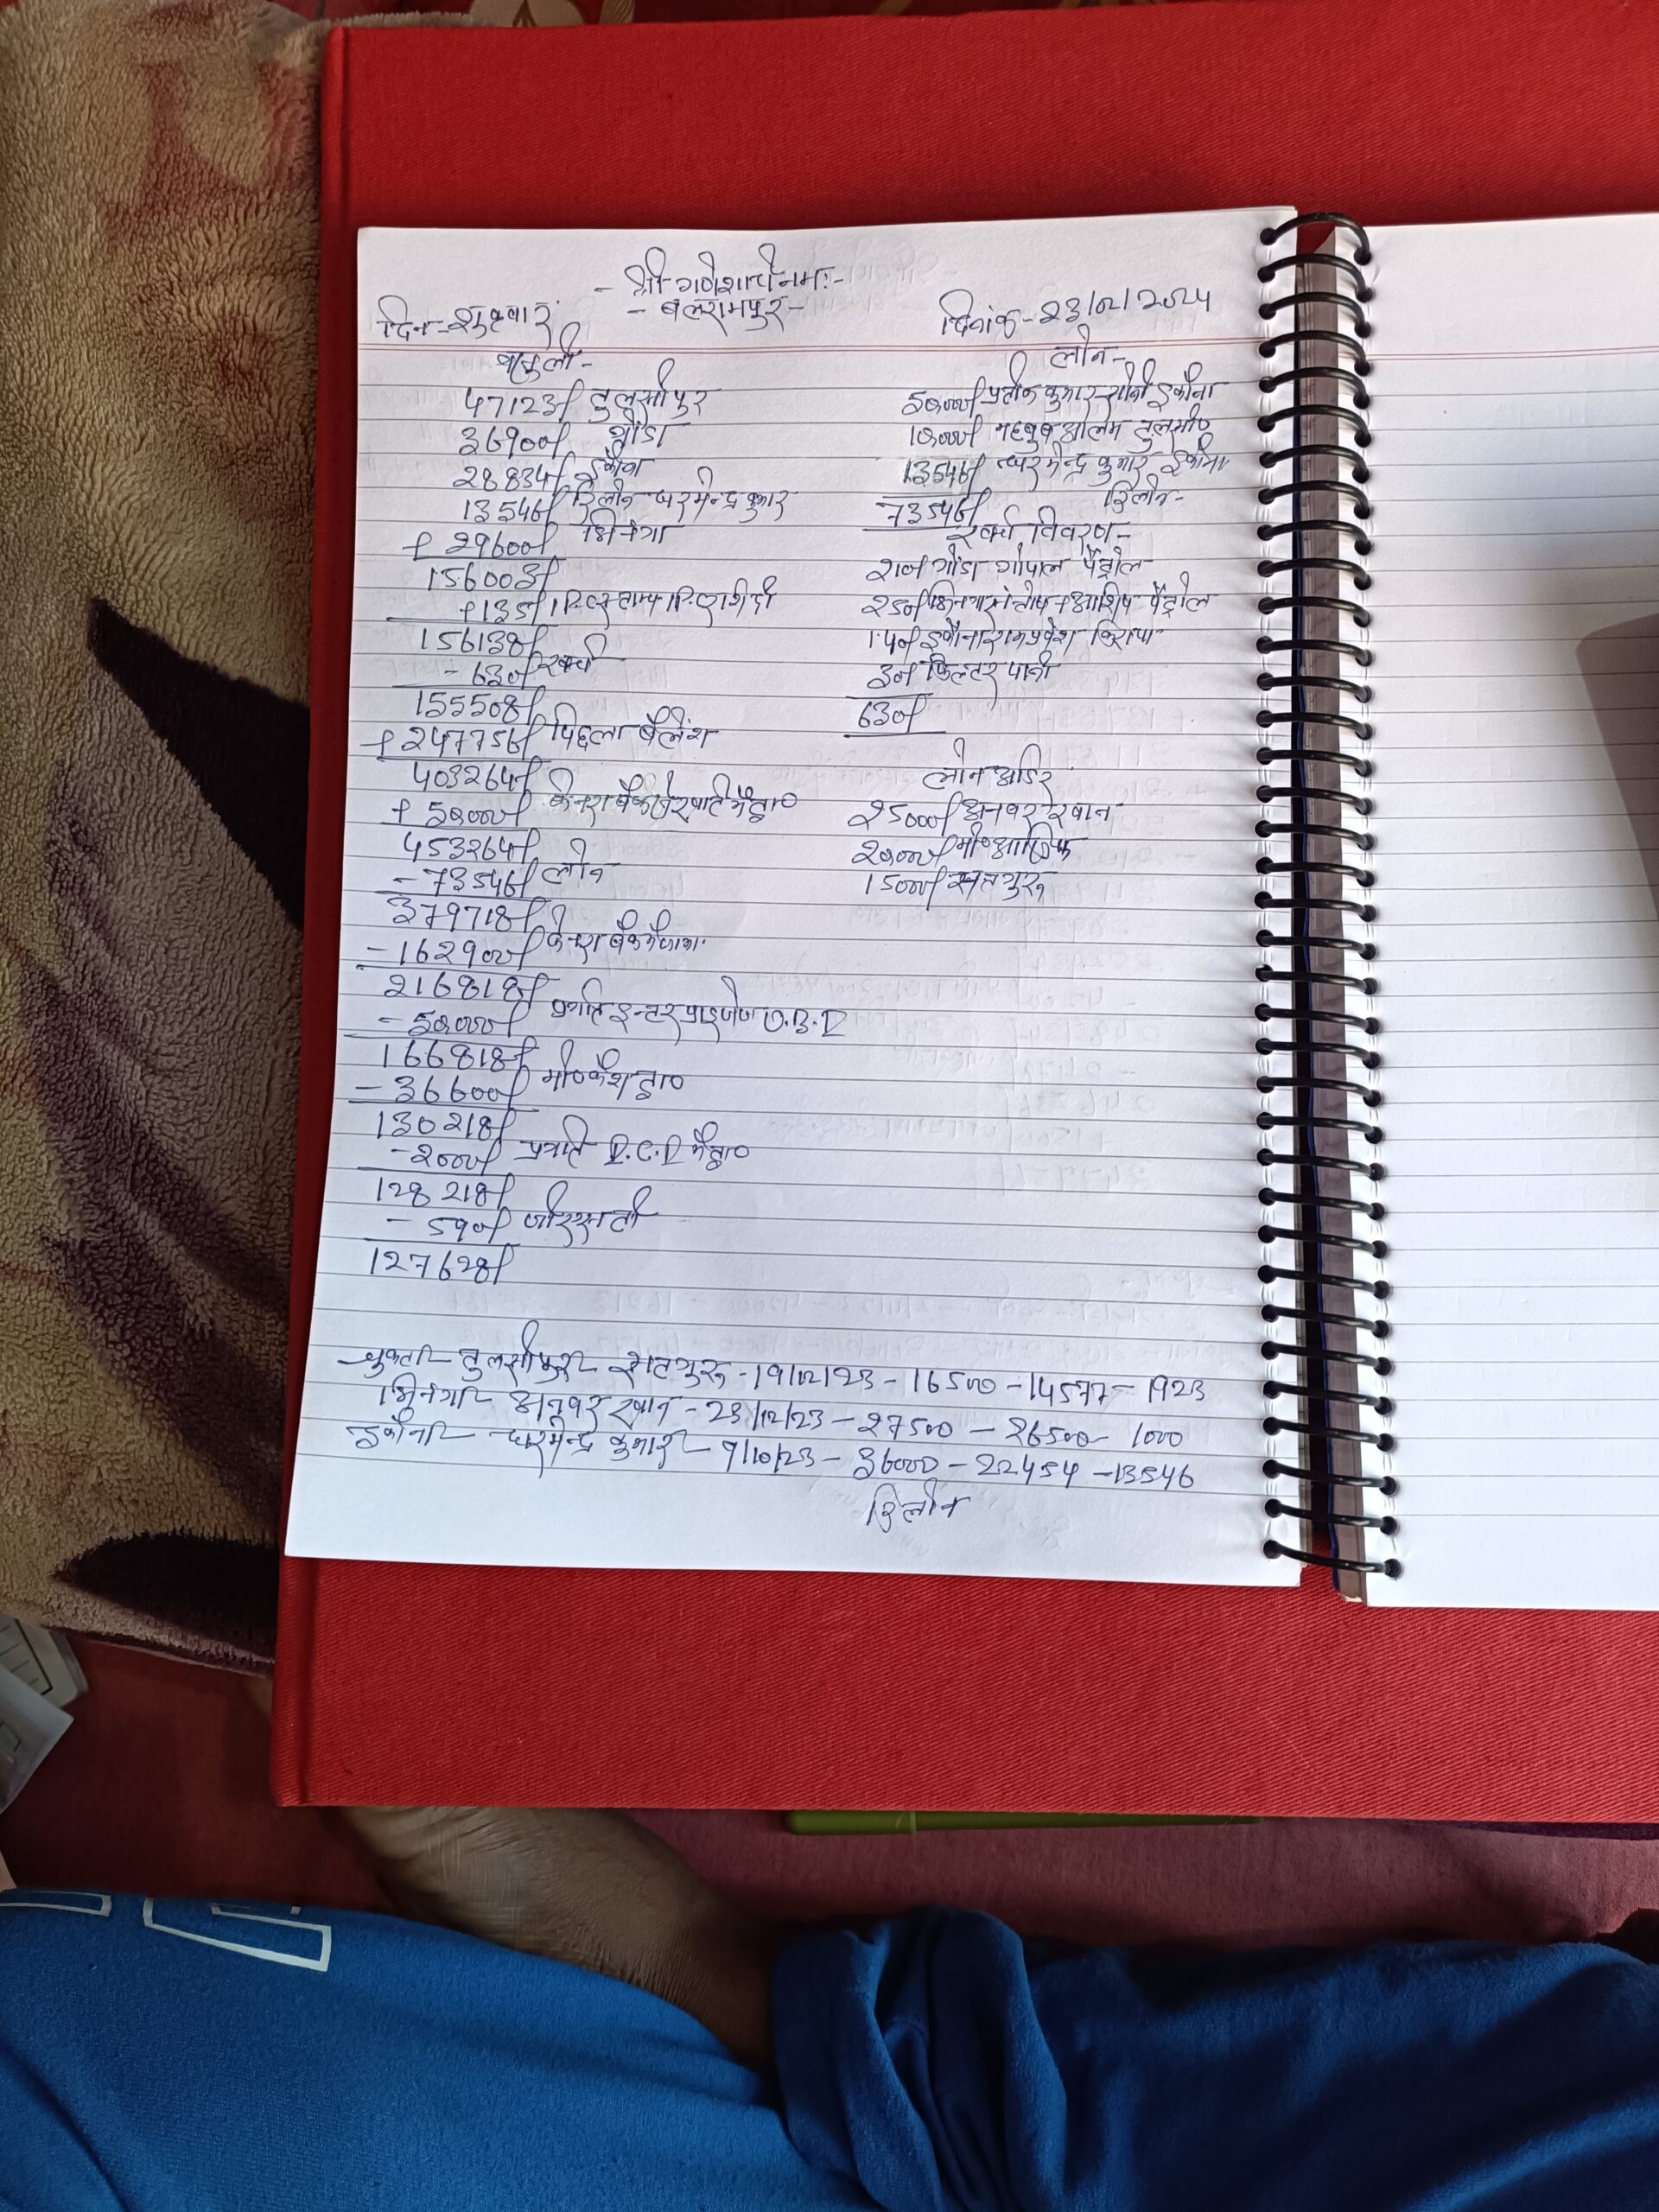 - श्री गणेशाये नमः -
- बलरामपुर -
दिन - शुक्रवार
दिनांक - 23/02/2024
वसुली -
47123/ तुलसीपुर
36900/ गोंडा
28834/ इकौना
13546/ रिलोन धरमेन्द्र कुमार
+ 29600/ भिनगा
156003/
+ 135/
156138/
- 630/ खर्चा
155508/
+ 247756/ पिछला बैलेंश
403264/
+ 50000/ केनरा बैंक
453264/
- 73546/ लोन
379718/
- 162900/ केनरा बैंक में जमा
216818/
- 50000/ प्रगति इन्टरप्राइजेज
166818/
- 36600/ मो० कैश द्वा०
130218/
- 2000/ प्रगति में द्वा०
128218/
- 590/ जीएसटी
127628/
लोन -
50000/ प्रतीक कुमार सोनी इकौना
10000/ महबुब आलम तुलसी०
13546/ धरमेन्द्र कुमार इकौना
73546/ रिलोन -
खर्चा विवरण -
200/ गोंडा गोपाल पेट्रोल
250/ भिनगा संतोष + आशिष पेट्रोल
150/ इकौना रामप्रवेश किराया
30/ फिल्टर पानी
630/
लोन आडर
25000/ अनवर खान
20000/ मो० आशिक
15000/ सतगुरू
चुकता - तुलसीपुर - सतगुरू - 19/12/23 - 16500 - 14577 = 1923
भिनगा - अनवर खान - 23/12/23 - 27500 - 26500 - 1000
इकौना - धरमेन्द्र कुमार - 9/10/23 - 36000 - 22454 - 13546
रिलोन